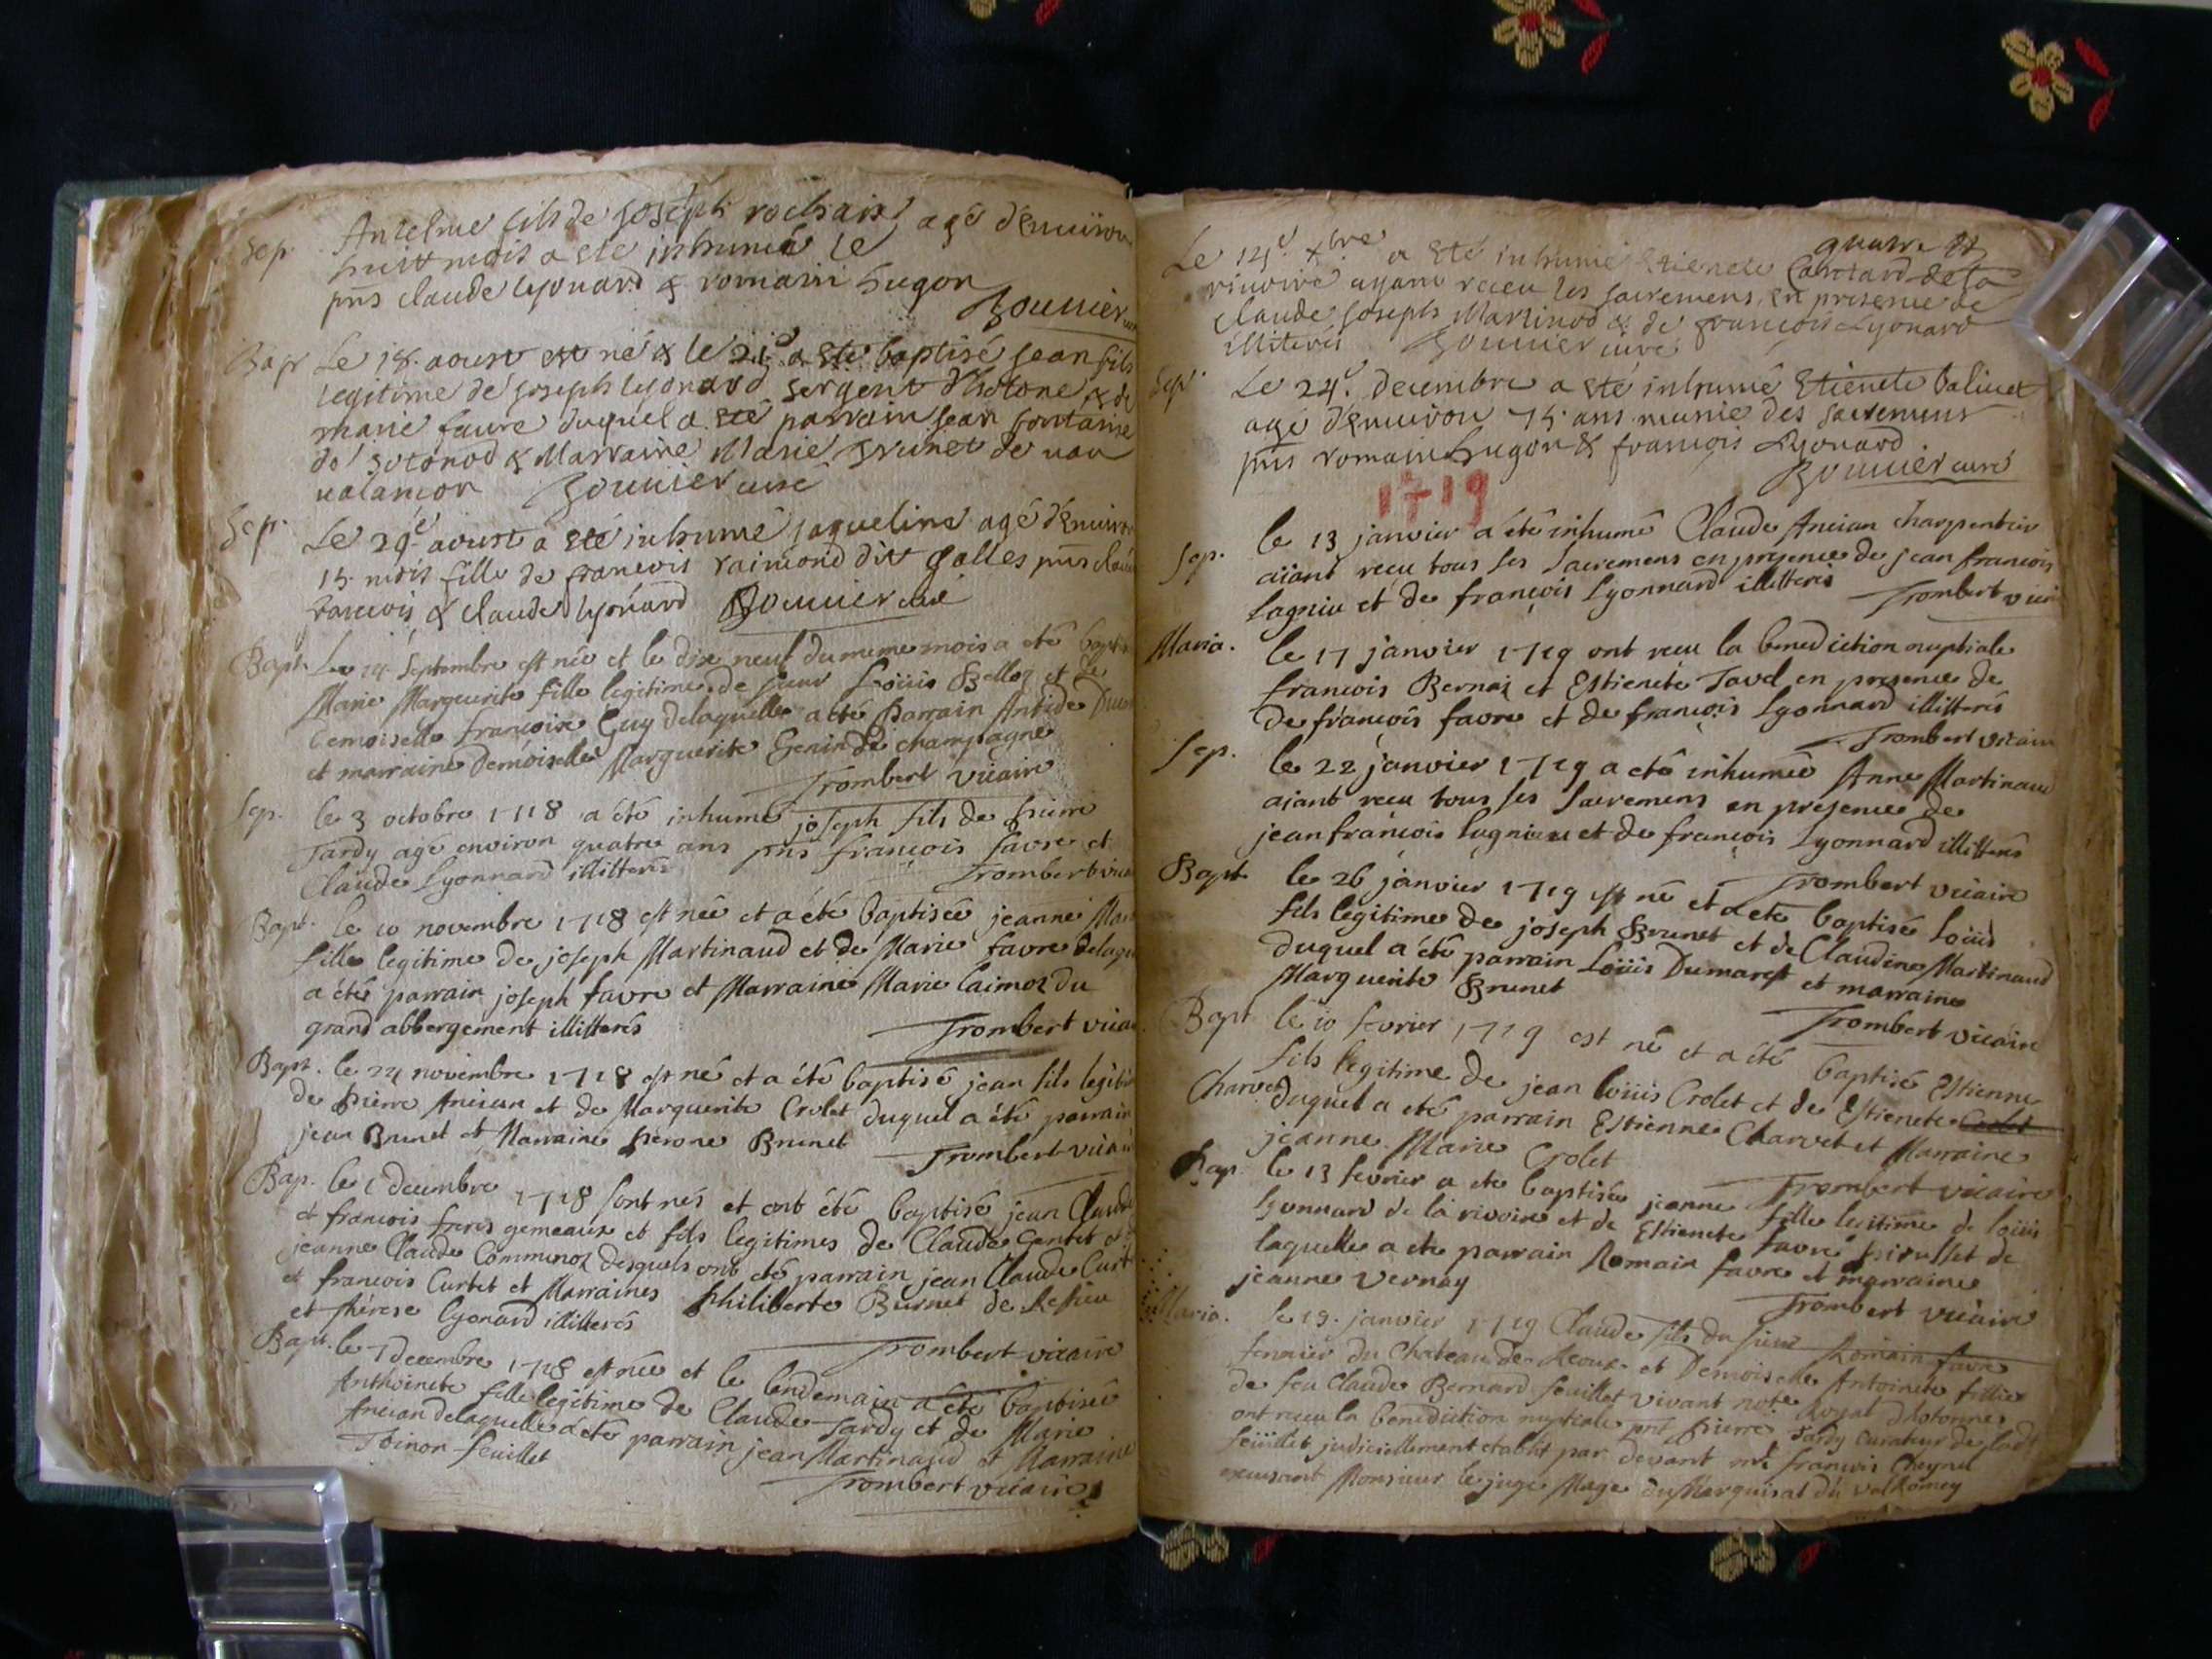 Sep. Anselme fils de Joseph rochaix agé d'enuiron
huit mois a ete inhumé le
pns claude lyonard & romain hugon
Bouuier
Bap Le 18. aoust est né & le a ete baptisé Jean fils
legitime de Joseph lyonard sergent d'hotone & de
marie faure duquel a ete parrain Jean fontaine
de sotonod & Marraine Marie brunet de uau
ualançon Bouuier curé
Sep. Le 29e aoust a eté inhumé Jaqueline agé d'enuiron
15. mois fille de francois raimond dit Salles pns
francois & claude lyonard Bouuier curé
Bapt. Le Septembre est née et le dix neuf du meme mois a eté
Marie Marguerite fille legitime de sieur Loüis Belloz et de
Demoiselle francoise Guy delaquelle a été parrain Antide
et marraine Demoiselle Marguerite Genin de champagne
Trombert vicaire
Sep. le 3 octobre 1718 a été inhumé joseph fils de pierre
Tardy agé environ quatre ans pns francois favre et
Claude Lyonnard illitterés Trombert
Bapt. le 10 novembre 1718 est née et a été baptisée jeanne
fille legitime de joseph Martinaud et de Marie favre
a été parrain joseph favre et Marraine Marie laimoz du
grand abbergement illitterés Trombert
Bapt. le 24 novembre 1718 est né et a été baptisé jean fils
de pierre Ancian et de Marguerite Crolet duquel a été parrain
jean Brunet et Marraine perone Brunet Trombert
Bap. le decembre 1718 sont nés et ont été baptisé jean Claude
et francois freres gemeaux et fils legitimes de Claude Gentet
jeanne Claude Communoz desquels ont été parrain jean Claude
et francois Curtet et Marraines philiberte Burnet de
et therese lyonard illitterés
Trombert vicaire
Bapt. le 7 decembre 1718 est née et le lendemain a été baptisée
Anthoinete fille legitime de Claude Tardy et de Marie
Ancian delaquelle a été parrain jean Martinaud et Marraine
Toinon feuillet
Trombert vicaire
Le xbre a eté inhumé Etienete
riuoire ayant receu les sacremens en presence de
claude Joseph Martinod & de francois Lyonard
illiterés Bouuier curé
Sep. Le 24e. decembre a eté inhumé Etienete baliuet
agé d'enuiron 75. ans munie des sacremens
pns romain hugon & francois Lyonard
Bouuier curé
1719
Sep. le 13 janvier a été inhumé Claude Ancian charpentier
aiant reçu tous les Sacremens en presence de jean francois
Lagniu et de françois Lyonnard illitterés Trombert
Maria. le 17 janvier 1719 ont reçu la benediction nuptiale
francois Bernaz et Estienete Tavel en presence de
de françois favre et de françois Lyonnard illitterés
Trombert vicaire
Sep. le 22 janvier 1719 a été inhumée Anne Martinaud
aiant reçu tous les Sacremens en presence de
jean françois lugnieu et de françois Lyonnard illitterés
Trombert vicaire
Bapt. le 26 janvier 1719 est né et a été baptisé Loüis
fils legitime de joseph Brunet et de Claudine Martinaud
duquel a été parrain Loüis Dumarest et marraine
Marguerite Brunet
Trombert vicaire
Bapt. le 10 fevrier 1719 est né et a été baptisé Estienne
fils legitime de jean loüis Crolet et de Estienete Crolet
Charvet duquel a eté parrain Estienne Charvet et Marraine
jeanne Marie Crolet
Trombert vicaire
Bap. le 13 fevrier a ete baptisée jeanne fille legitime de loüis
Lyonnard de la rivoire et de Estienete favre de
laquelle a ete parrain Romain favre et marraine
jeanne Vernay
Trombert vicaire
Maria. le 19. janvier 1719 Claude fils du sieur Romain favre
fermier du Chateau de et Demoiselle Antoinete fillie
de feu Claude Bernard feuillet vivant notre Royal d'hotonnes
ont reçu la benediction nuptiale pnt pierre Tardy curateur de
feüillet judiciellement etablit par devant françois Cheynel
exerçant Monsieur le juge Mage du Marquisat du valromey